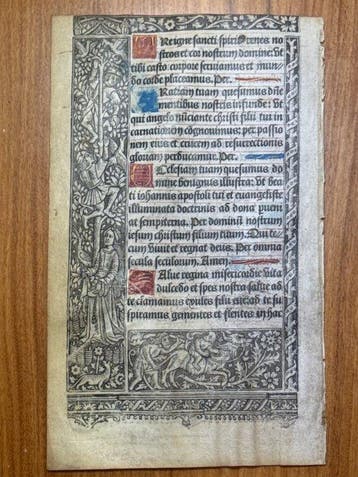 Ure igne sancti spiritus renes no
stros et cor nostrum domine: Ut
tibi casto corpore seruiamus et mun
do corde placeamus. Per.
Gratiam tuam quesumus dñe
mentibus nostris infunde: Ut
qui angelo nũciante christi filii tui in
carnationem cognouimus: per passio
nem eius et crucem ad resurrectionis
gloriam perducamur. Per.
Ecclesiam tuam quesumus do
mine benignus illustra: Ut be
ati iohannis apostoli tui et euangeliste
illuminata doctrinis ad dona pueni
at sempiterna. Per dominũ nostrum
iesum christum filium tuum. Qui te
cum viuit et regnat deus. Per omnia
secula seculorum. Amen.
Salue regina misericordie vita
dulcedo et spes nostra salue ad
te clamamus exules filii eue: ad te su
spiramus gementes et flentes in hac